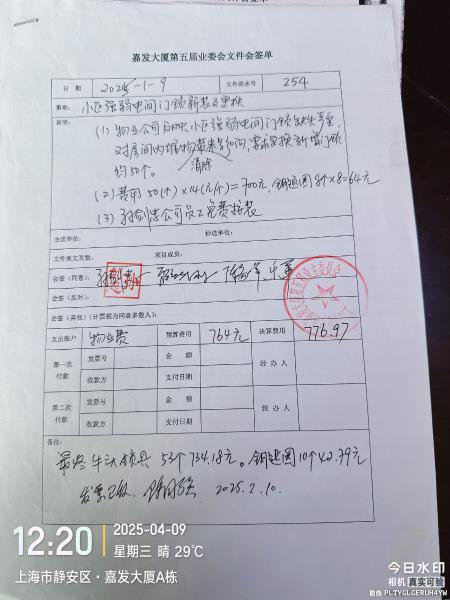 嘉发大厦第五届业委会文件会签单
日期 2025-1-9 文件流水号 254
事由: 小区强弱电间门锁新装及更换
说明: (1) 物业公司反映小区强弱电间门锁缺失严重,
清除
要求更换新增门锁
约50个。
(2) 费用50(个)×14(元/个)=700元, 钥匙圈8个×8=64元
(3)
主送单位: 抄送单位:
文件原文页数: 项目成员:
会签(同意):
会签(反对):
会签(弃权)(计票视为同意多数人):
支出账户 物业费 预算费用 764元 决算费用 776.97
第一次付款 发票号 金额 经办人
收款方 支付日期
第二次付款 发票号 金额 经办人
收款方 支付日期
备注:
最终牛头锁具 53个734.18元。钥匙圈10个42.79元
发票已收. 2025.2.10.
12:20 2025-04-09
星期三 晴 29℃
上海市静安区·嘉发大厦A栋
今日水印
相机 真实可验
防伪 PLTYCLGERUH4YW